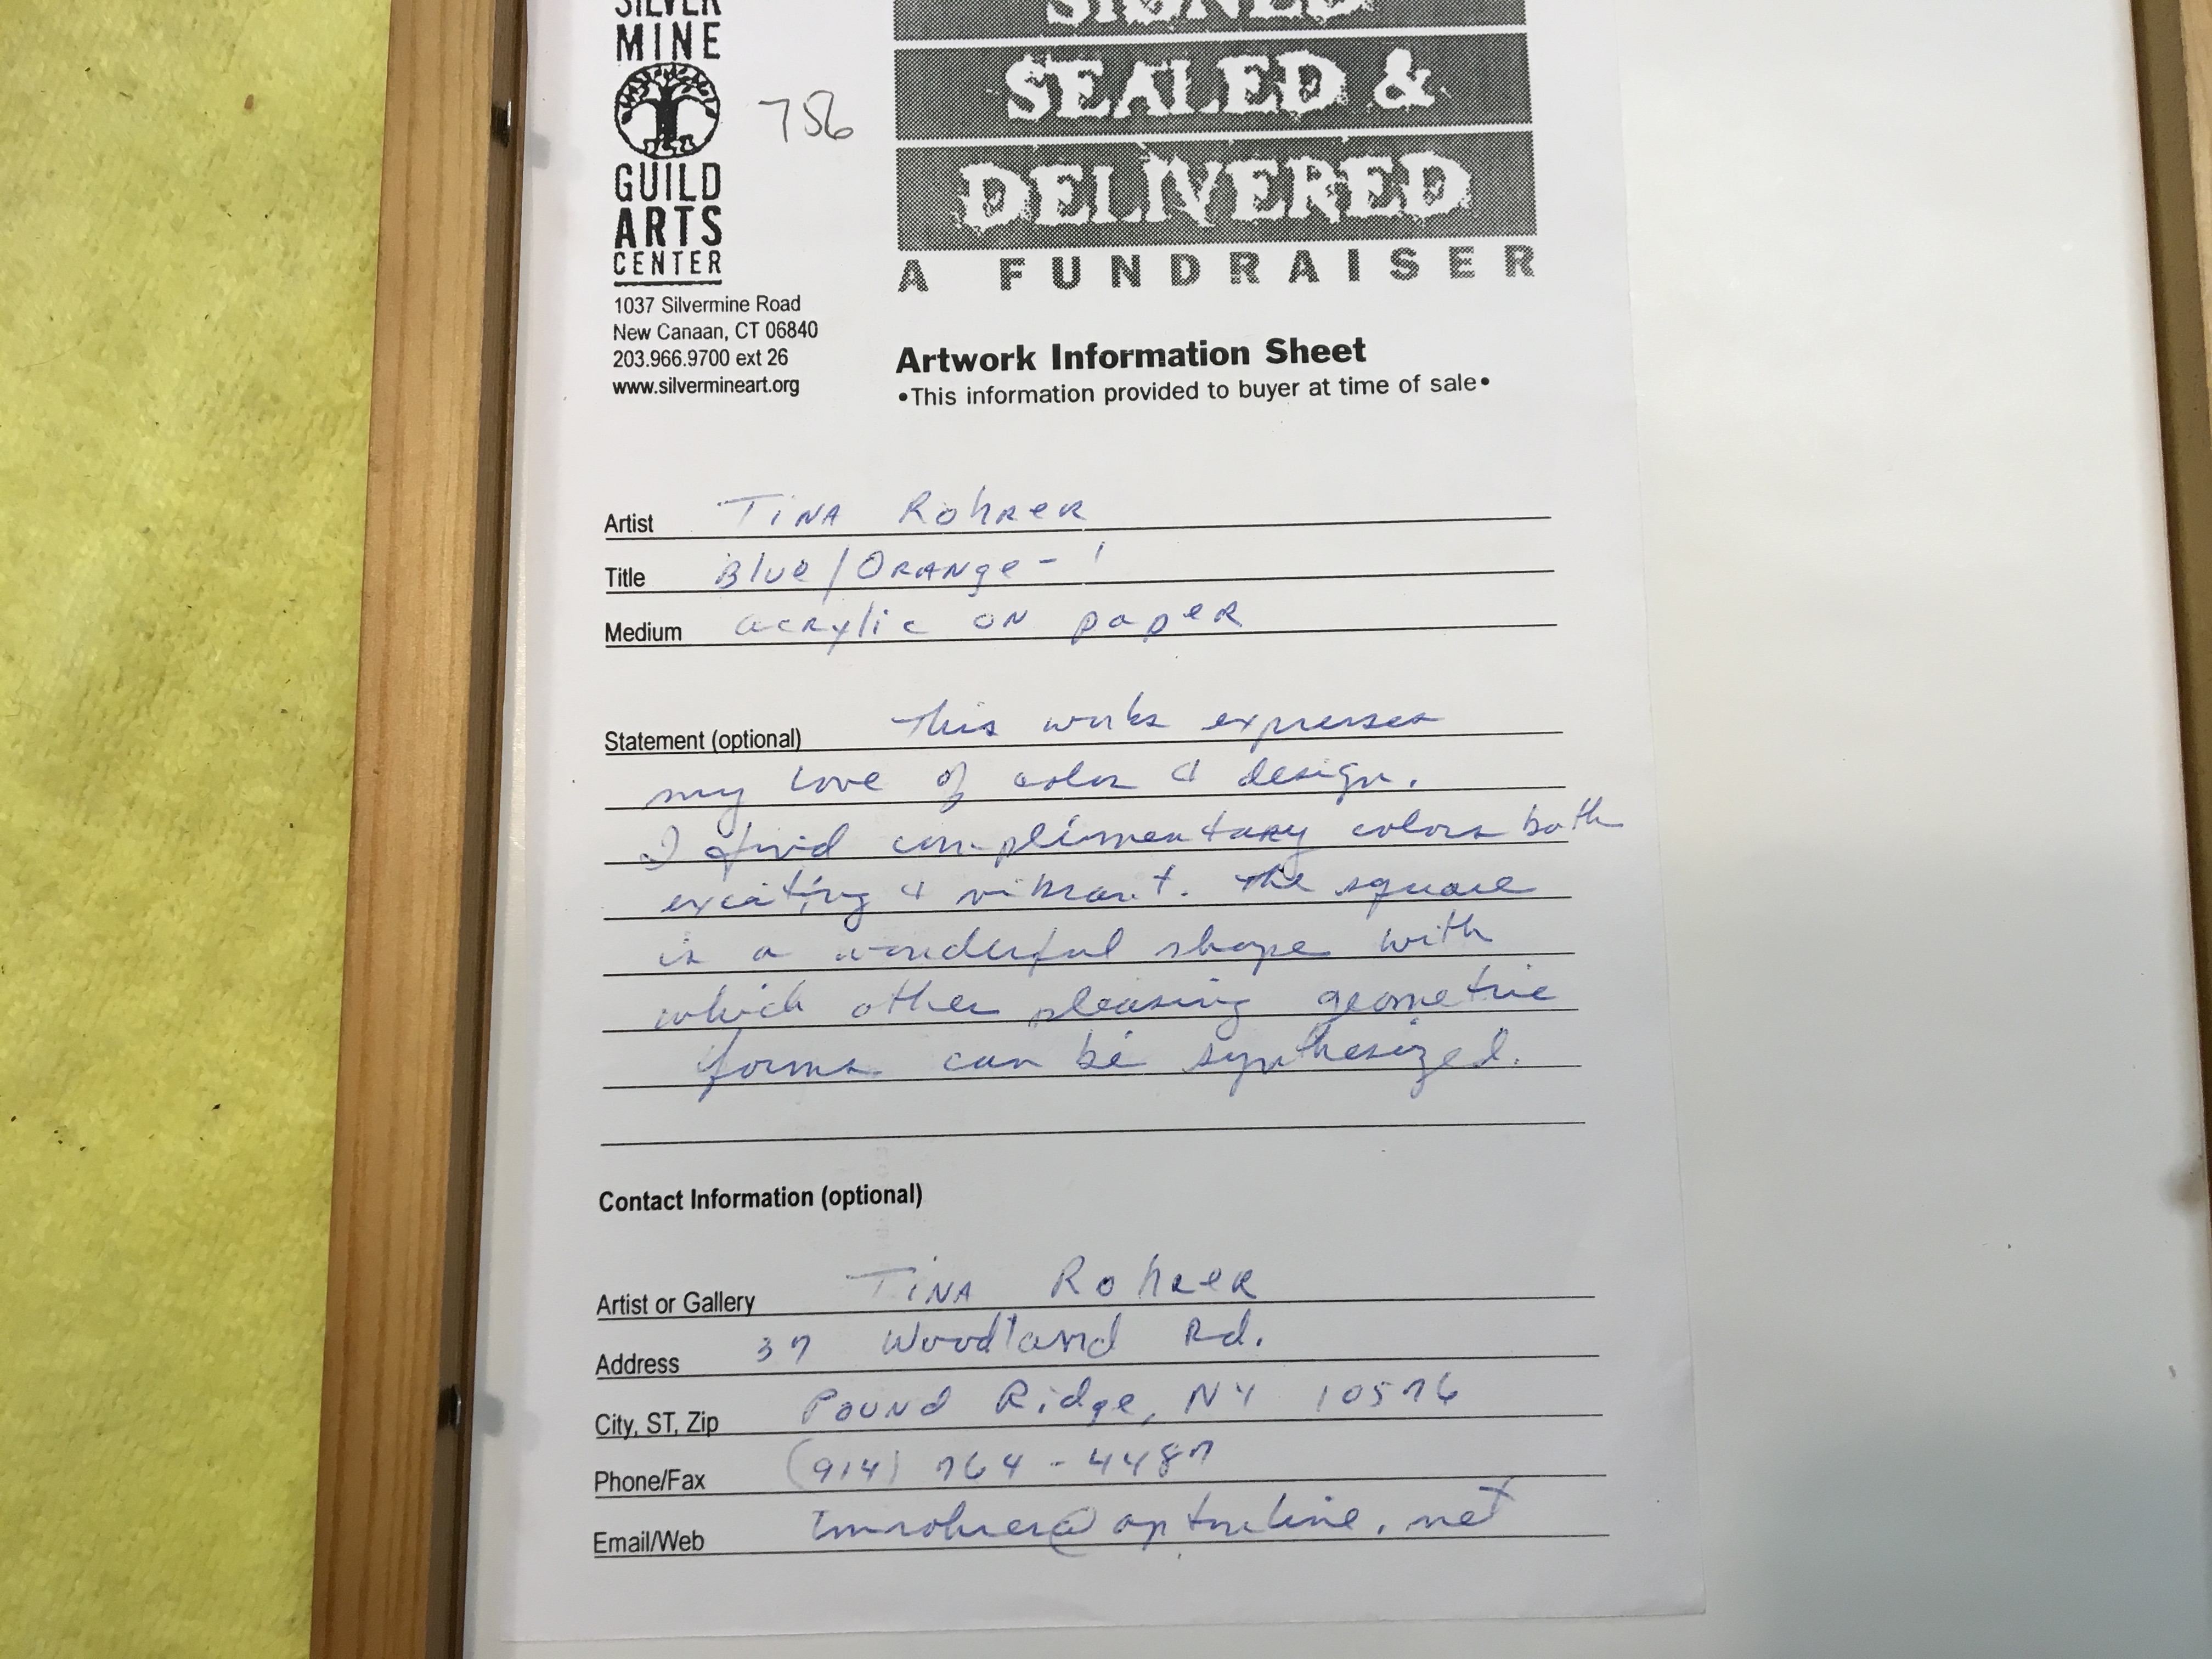 SILVER
MINE
GUILD
ARTS
CENTER
1037 Silvermine Road
New Canaan, CT 06840
203.966.9700 ext 26
www.silvermineart.org
756
SIGNED
SEALED &
DELIVERED
A FUNDRAISER
Artwork Information Sheet
•This information provided to buyer at time of sale•
Artist Tina Rohrer
Title Blue/Orange - 1
Medium acrylic on paper
Statement (optional) This works expresses
my love of color & design.
I find complimentary colors both
exciting & vibrant. The square
is a wonderful shape with
which other pleasing geometric
forms can be synthesized.
Contact Information (optional)
Artist or Gallery Tina Rohrer
Address 37 Woodland Rd.
City, ST, Zip Pound Ridge, NY 10576
Phone/Fax (914) 764-4487
Email/Web tmrohrer@optonline.net